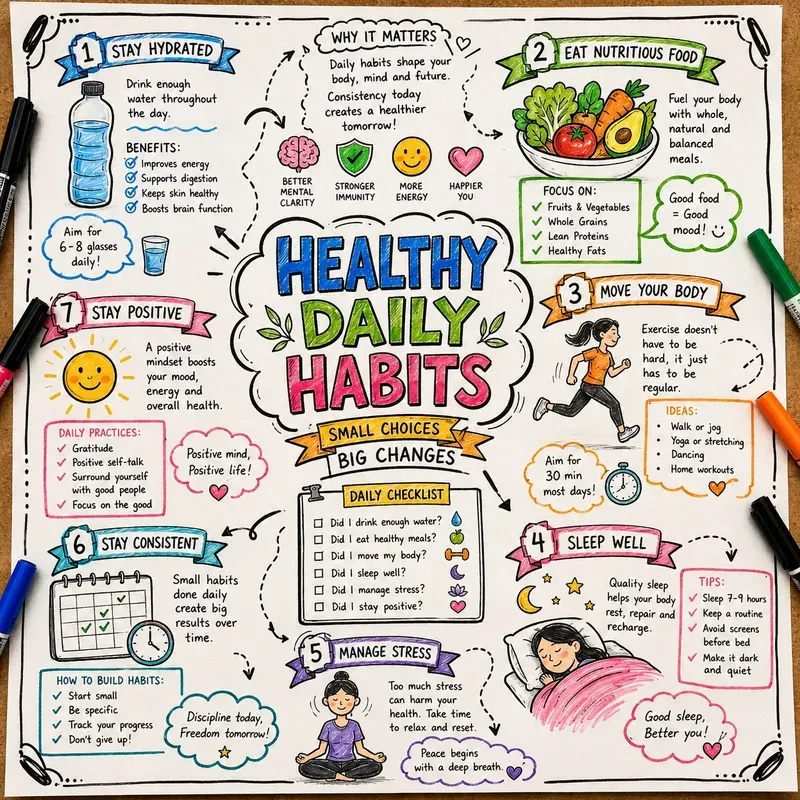 WHY IT MATTERS
Daily habits shape your
body, mind and future.
Consistency today
creates a healthier
tomorrow!
BETTER
MENTAL
CLARITY
STRONGER
IMMUNITY
MORE
ENERGY
HAPPIER
YOU
HEALTHY
DAILY
HABITS
SMALL CHOICES
BIG CHANGES
1 STAY HYDRATED
Drink enough
water throughout
the day.
BENEFITS:
Improves energy
Supports digestion
Keeps skin healthy
Boosts brain function
Aim for
6-8 glasses
daily!
2 EAT NUTRITIOUS FOOD
Fuel your body
with whole,
natural and
balanced
meals.
FOCUS ON:
Fruits & Vegetables
Whole Grains
Lean Proteins
Healthy Fats
Good food
= Good
mood!
3 MOVE YOUR BODY
Exercise doesn't
have to be
hard, it just
has to be
regular.
IDEAS:
• Walk or jog
• Yoga or stretching
• Dancing
• Home workouts
Aim for
30 min
most days!
4 SLEEP WELL
Quality sleep
helps your body
rest, repair and
recharge.
TIPS:
Sleep 7-9 hours
Keep a routine
Avoid screens
before bed
Make it dark
and quiet
Good sleep,
Better you!
5 MANAGE STRESS
Too much stress
can harm your
health. Take time
to relax and reset.
Peace begins
with a deep breath.
6 STAY CONSISTENT
Small habits
done daily
create big
results over
time.
HOW TO BUILD HABITS:
Start small
Be specific
Track your progress
Don't give up!
Discipline today,
Freedom tomorrow!
7 STAY POSITIVE
A positive
mindset boosts
your mood,
energy and
overall health.
DAILY PRACTICES:
Gratitude
Positive self-talk
Surround yourself
with good people
Focus on the good
Positive mind,
Positive life!
DAILY CHECKLIST
Did I drink enough water?
Did I eat healthy meals?
Did I move my body?
Did I sleep well?
Did I manage stress?
Did I stay positive?